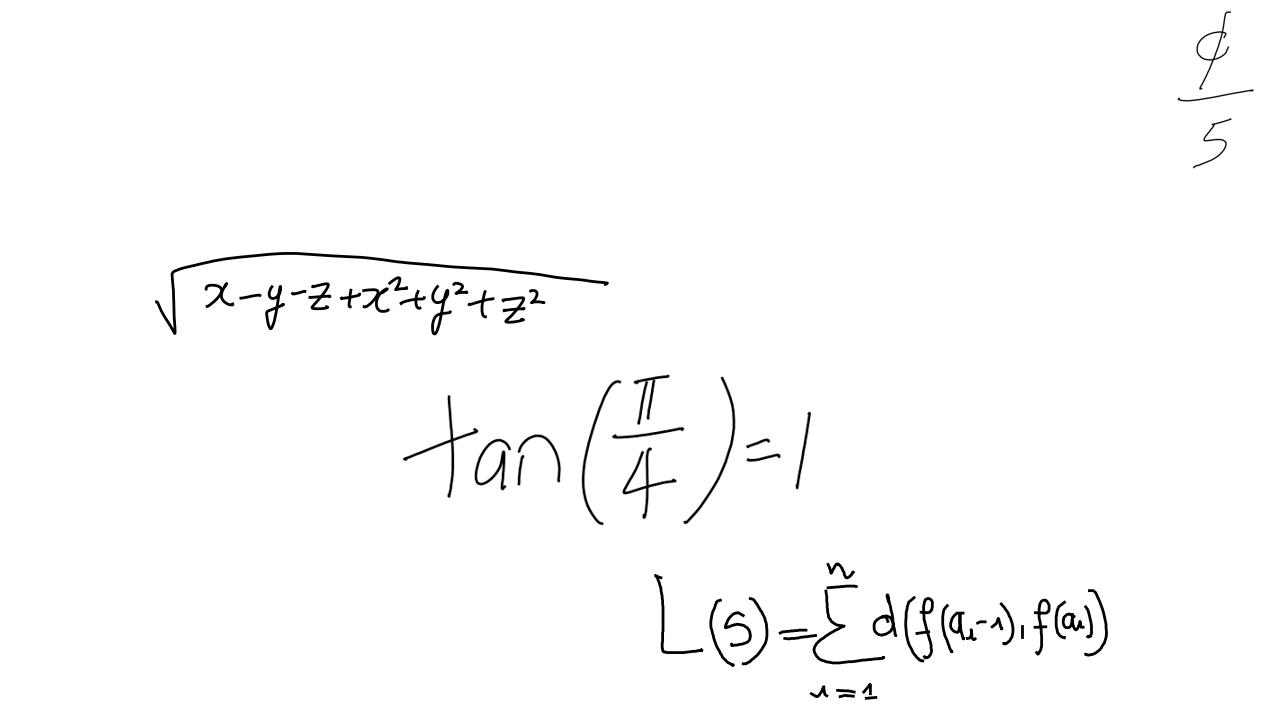 \frac{\phi}{5}
\sqrt{x-y-z+x^2+y^2+z^2}
\tan\left(\frac{\pi}{4}\right)=1
L(S)=\sum_{i=1}^{n}d(f(a_i-1),f(a_i))